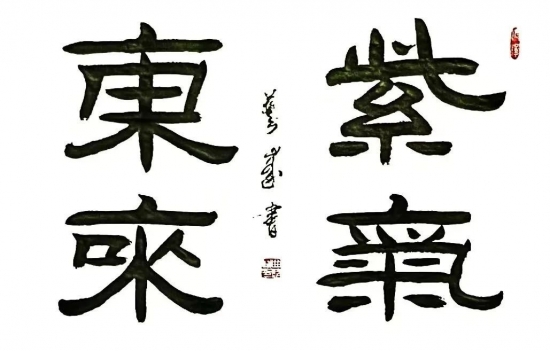 紫氣
東來
書